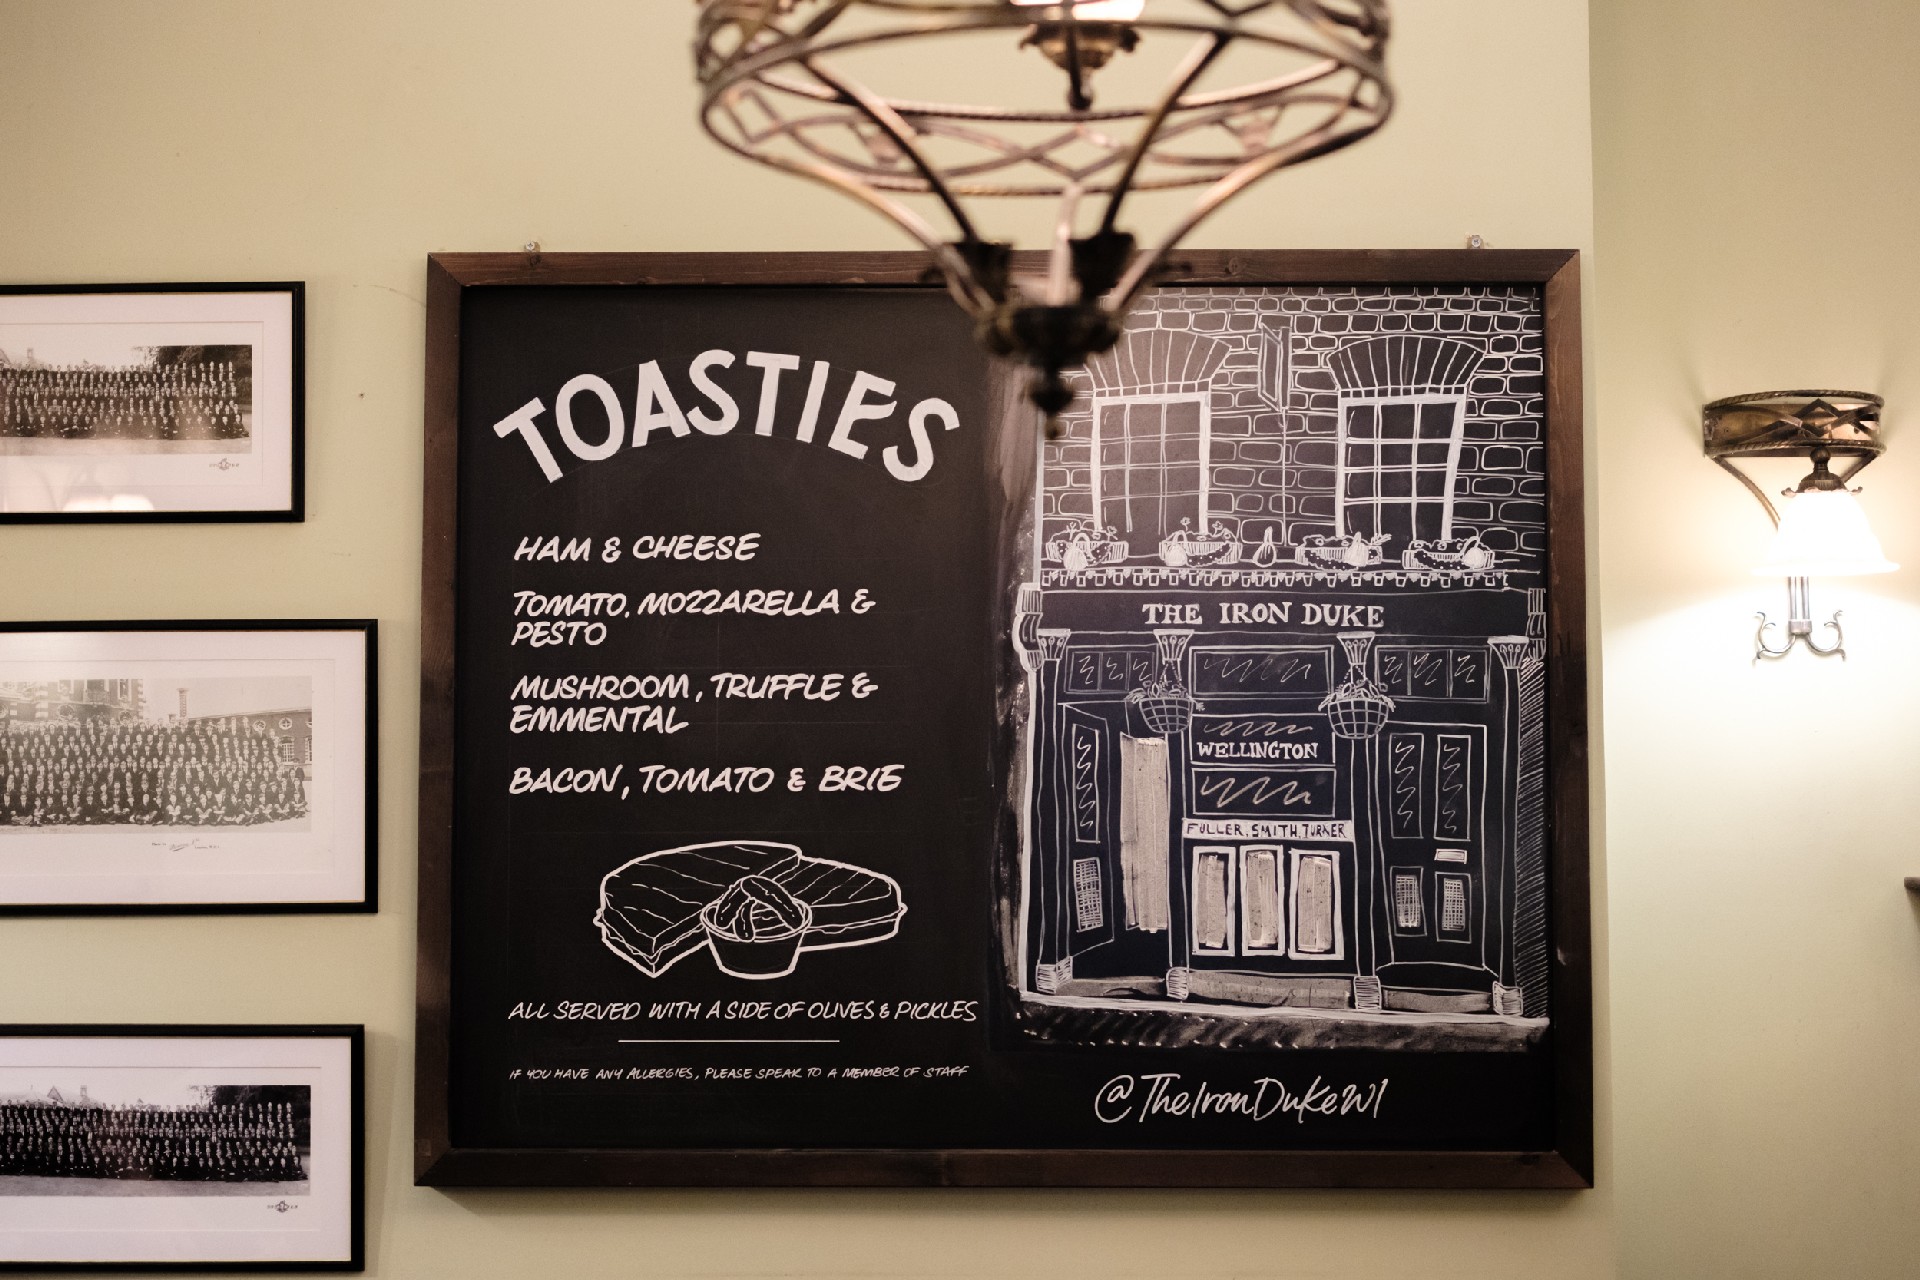 TOASTIES
HAM & CHEESE
TOMATO, MOZZARELLA &
PESTO
MUSHROOM, TRUFFLE &
EMMENTAL
BACON, TOMATO & BRIE
ALL SERVED WITH A SIDE OF OLIVES & PICKLES
IF YOU HAVE ANY ALLERGIES, PLEASE SPEAK TO A MEMBER OF STAFF
THE IRON DUKE
WELLINGTON
FULLER, SMITH, TURNER
@TheIronDukeW1